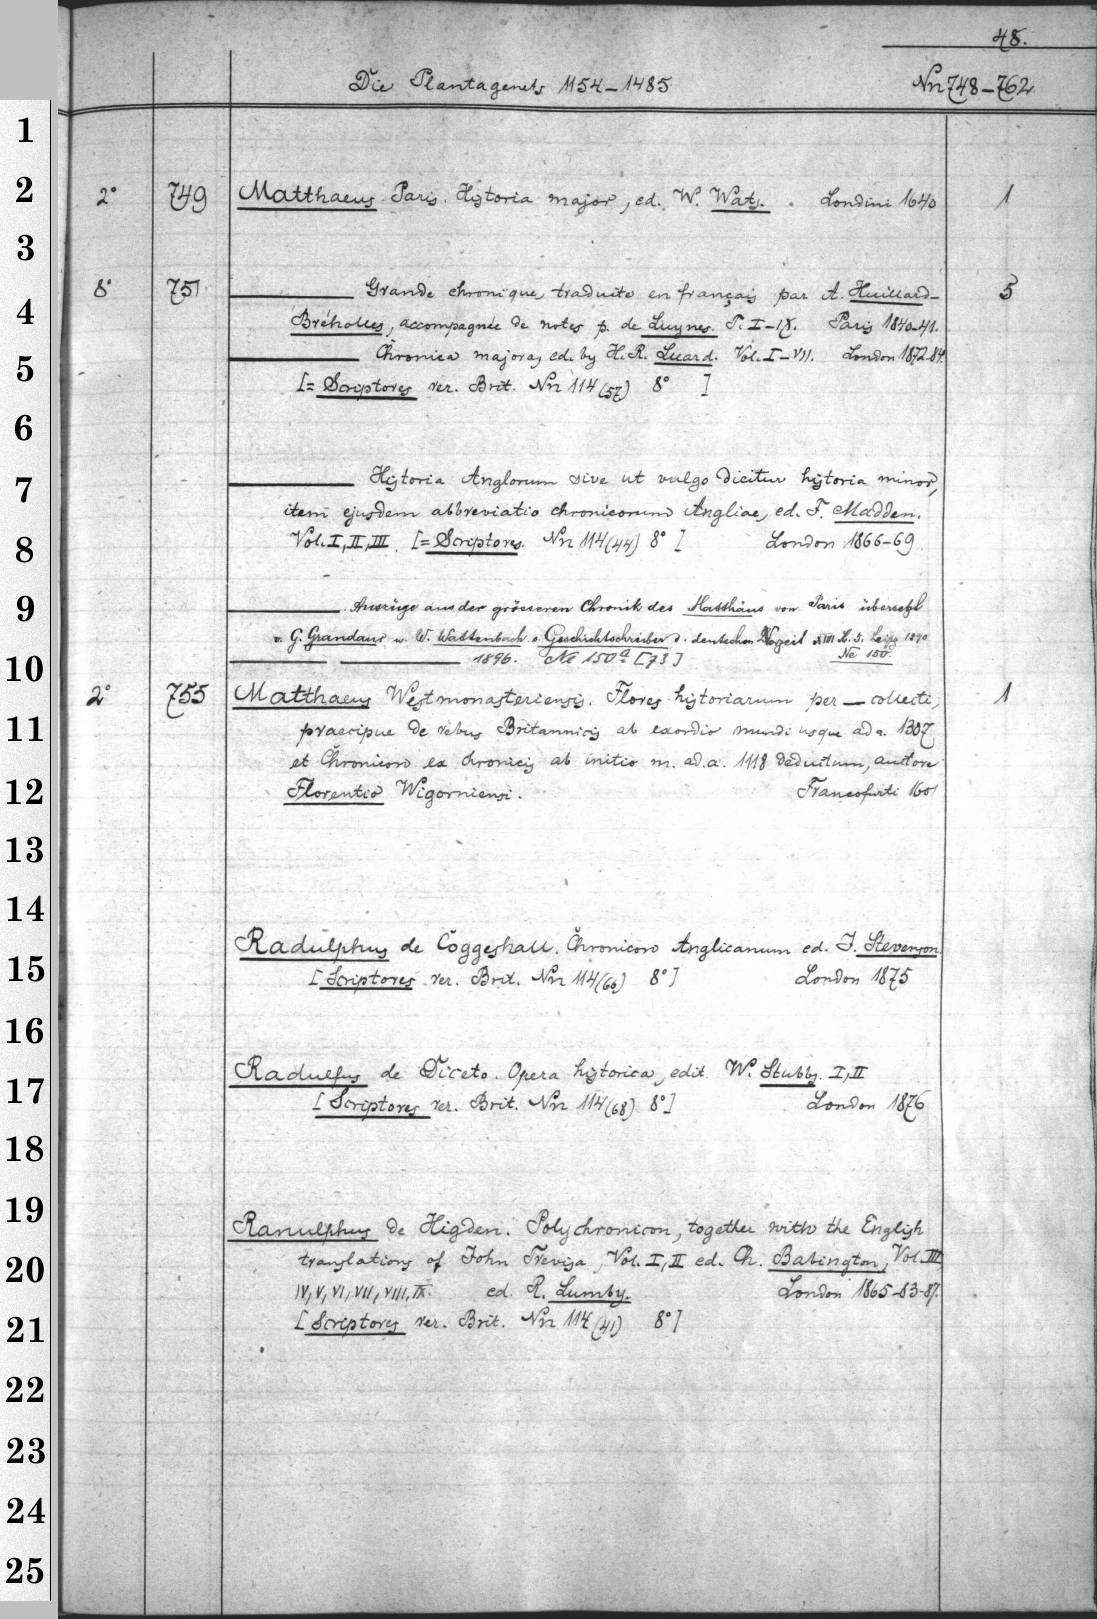 48.
Die Plantagenets 1154-1485 Nn 748-762
1
2 2° 749 Matthaeus Paris. Historia major, ed. W. Wats. Londini 1640 1
3
8° 751 ——— Grande chronique, traduite en français par A. Huillard- 5
4 Bréholles, accompagnée de notes p. de Luynes. T. I-IX. Paris 1840-41.
——— Chronica majora, ed. by H. R. Luard. Vol. I-VII. London 1872-84.
5 [= Scriptores rer. Brit. Nn 114 (57) 8° ]
6
7 ——— Historia Anglorum sive ut vulgo dicitur historia minor,
item ejusdem abbreviatio chronicorum Angliae, ed. F. Madden.
8 Vol. I, II, III. [= Scriptores. Nn 114 (44) 8° ] London 1866-69
9 ——— Auszüge aus der grösseren Chronik des Matthäus von Paris übersetzt
v. G. Grandaur u. W. Wattenbach. Geschichtschreiber d. deutschen Vorzeit XIII Leipz 1890
10 ——— ——— 1896. Ne 150a [73] Ne 150.
2° 755 Matthaeus Westmonasteriensis. Flores historiarum per — collecti, 1
11 praecipue de rebus Britannicis ab exordio mundi usque ad a. 1307
et Chronicon ex chronicis ab initio m. ad. a. 1118 deductum, autore
12 Florentio Wigorniensi. Francofurti 1601
13
14
Radulphus de Coggeshall. Chronicon Anglicanum ed. J. Stevenson
15 [Scriptores rer. Brit. Nn 114 (66) 8° ] London 1875
16
Radulfus de Diceto. Opera historica, edit. W. Stubbs. I, II
17 [Scriptores rer. Brit. Nn 114 (68) 8° ] London 1876
18
19
Ranulphus de Higden. Polychronicon, together with the English
20 translations of John Trevisa, Vol. I, II ed. Ch. Babington, Vol. III
IV, V, VI, VII, VIII, IX. ed. R. Lumby. London 1865-83-87.
21 [Scriptores rer. Brit. Nn 114 (41) 8° ]
22
23
24
25